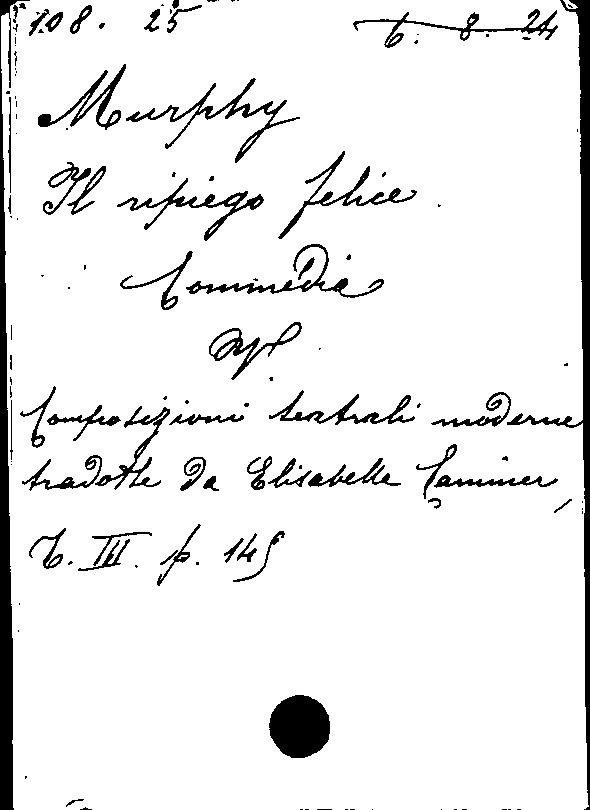 108. 25 6. 8. 24
Murphy
Il ripiego felice
Commedia
Composizioni teatrali moderne
tradotte da Elisabetta Caminer,
T. III. p. 145